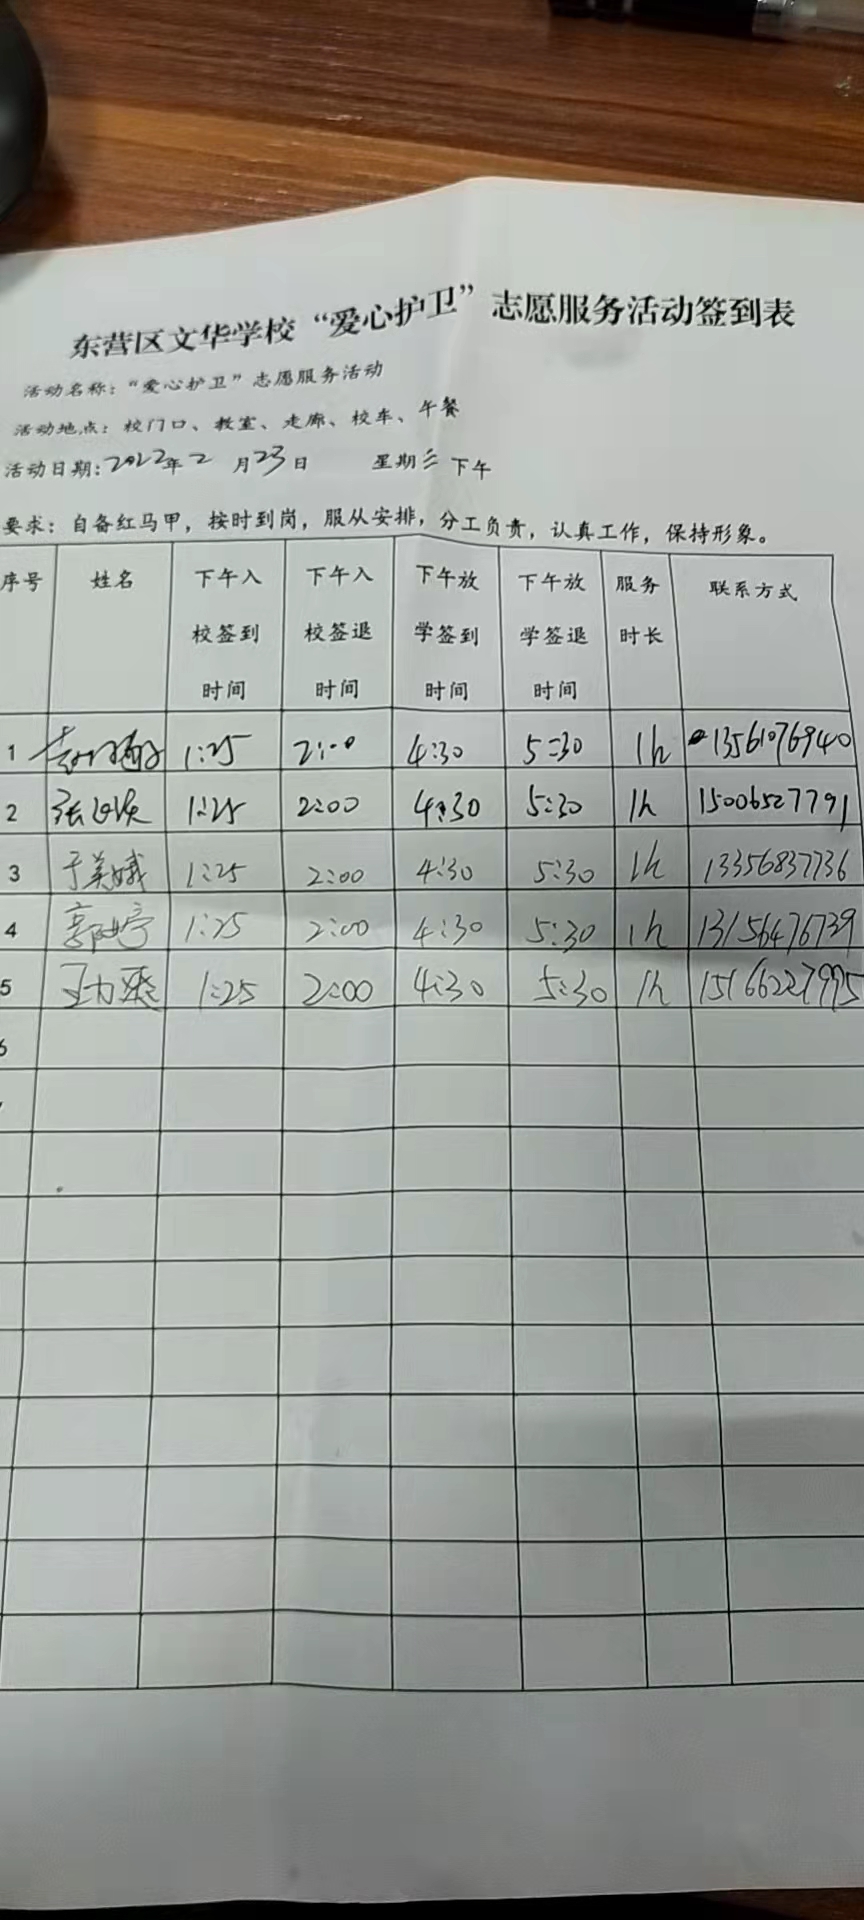 东营区文华学校“爱心护卫”志愿服务活动签到表
活动名称：“爱心护卫”志愿服务活动
活动地点：校门口、教室、走廊、校车、午餐
活动日期：2022年2月23日 星期三 下午
要求：自备红马甲，按时到岗，服从安排，分工负责，认真工作，保持形象。
序号 姓名 下午入校签到时间 下午入校签退时间 下午放学签到时间 下午放学签退时间 服务时长 联系方式
1 1:25 2:00 4:30 5:30 1h 13561076940
2 张 1:25 2:00 4:30 5:30 1h 15006527791
3 于美娥 1:25 2:00 4:30 5:30 1h 13356837736
4 郭婷 1:25 2:00 4:30 5:30 1h 13156476739
5 1:25 2:00 4:30 5:30 1h 15166227995
6